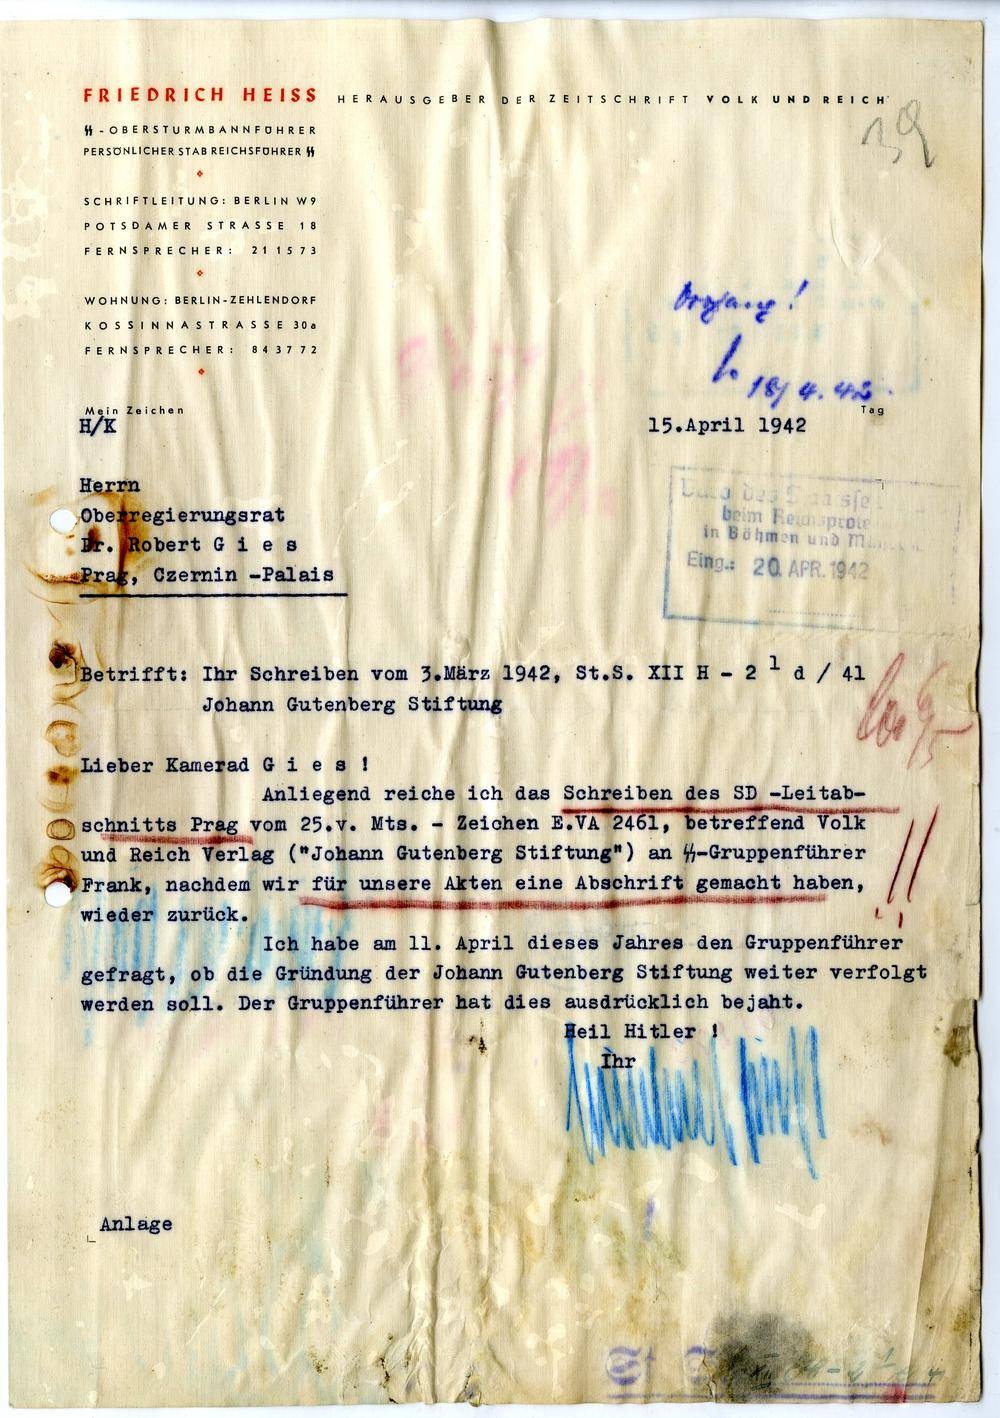 FRIEDRICH HEISS HERAUSGEBER DER ZEITSCHRIFT VOLK UND REICH
39
SS-OBERSTURMBANNFÜHRER
PERSÖNLICHER STAB REICHSFÜHRER SS
SCHRIFTLEITUNG: BERLIN W9
POTSDAMER STRASSE 18
FERNSPRECHER: 21 15 73
WOHNUNG: BERLIN-ZEHLENDORF
KOSSINNASTRASSE 30a
FERNSPRECHER: 84 37 72
Vorgang!
18/4.42.
Mein Zeichen
Tag
H/K
15.April 1942
Herrn
Oberregierungsrat
Dr. Robert G i e s
Prag, Czernin -Palais
Büro des
beim
in Böhmen und
Eing.: 20. APR. 1942
Betrifft: Ihr Schreiben vom 3.März 1942, St.S. XII H - 2 l d / 41
Johann Gutenberg Stiftung
Lieber Kamerad G i e s !
Anliegend reiche ich das Schreiben des SD -Leitab-
schnitts Prag vom 25.v. Mts. - Zeichen E.VA 2461, betreffend Volk
und Reich Verlag ("Johann Gutenberg Stiftung") an SS-Gruppenführer
Frank, nachdem wir für unsere Akten eine Abschrift gemacht haben,
wieder zurück.
!!
Ich habe am 11. April dieses Jahres den Gruppenführer
gefragt, ob die Gründung der Johann Gutenberg Stiftung weiter verfolgt
werden soll. Der Gruppenführer hat dies ausdrücklich bejaht.
Heil Hitler !
Ihr
Anlage